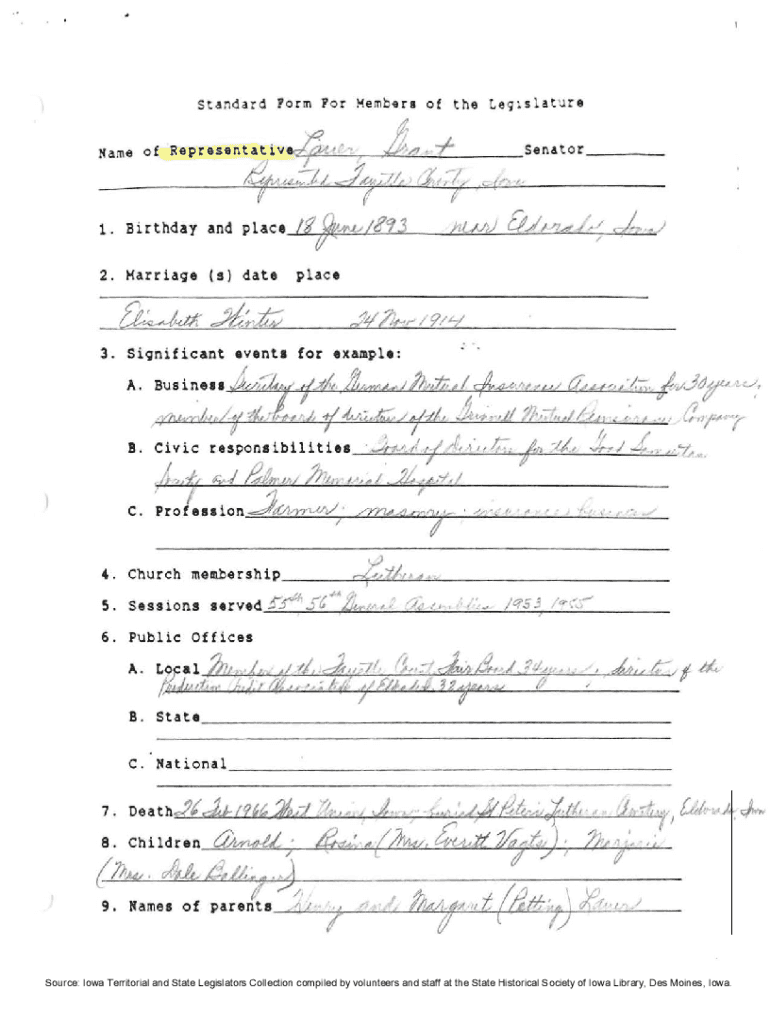 1
Standard Form For Members of the Legislature
Name of Representative Lauer, Grant Senator
Represented Fayette County, Iowa
1. Birthday and place 18 June 1893 near Eldorado, Iowa
2. Marriage (s) date place
Elisabeth Winter 24 Nov 1914
3. Significant events for example:
A. Business Secretary of the German Mutual Insurance Association for 30 years,
member of the boards of directors of the Grinnell Mutual Reinsurance Company
B. Civic responsibilities Board of Directors for the Good Samaritan
Society and Palmer Memorial Hospital
C. Profession Farmer; masonry; insurance business
4. Church membership Lutheran
5. Sessions served 55th 56th General Assemblies 1953, 1955
6. Public Offices
A. Local Member of the Fayette Fair Board 34 years; Director of the
Production Credit Association of 32 years
B. State
C. National
7. Death 26 Feb 1966 West Union, Iowa; buried St Peter's Lutheran Cemetery, Eldorado, Iowa
8. Children Arnold; Rosina (Mrs. Everitt Vagts); Marjorie
(Mrs. Dale Bollinger)
9. Names of parents Henry and Margaret (Petting) Lauer
Source: Iowa Territorial and State Legislators Collection compiled by volunteers and staff at the State Historical Society of Iowa Library, Des Moines, Iowa.